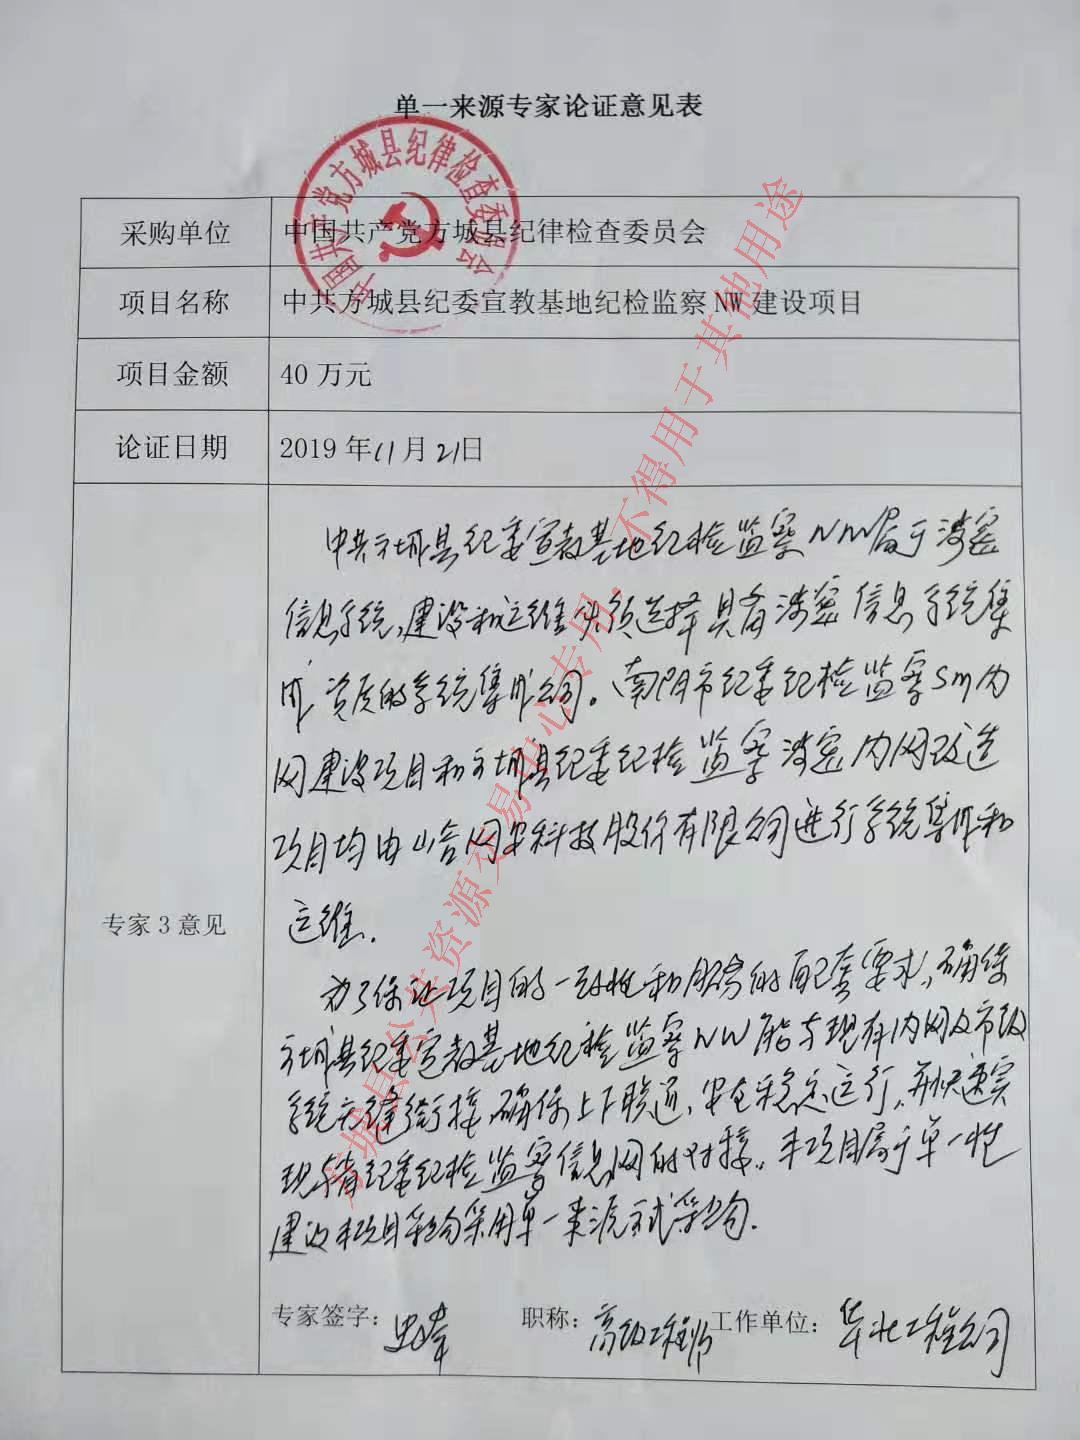 单一来源专家论证意见表
中国共产党方城县纪律检查委员会
采购单位 中国共产党方城县纪律检查委员会
项目名称 中共方城县纪委宣教基地纪检监察 NW 建设项目
项目金额 40 万元
论证日期 2019 年 11 月 21 日
专家 3 意见
中共方城县纪委宣教基地纪检监察NW属于涉密
信息系统,建设和运维必须选择具有涉密信息系统集
成资质的系统集成公司。南阳市纪委纪检监察SM内
网建设项目和方城县纪委纪检监察涉密内网改造
项目均由山谷网安科技股份有限公司进行系统集成和
运维.
为了保证项目的一致性和服务的配套要求,确保
方城县纪委宣教基地纪检监察NW能与现有内网及市级
系统无缝衔接,确保上下联通、安全稳定运行,并快速实
现与省纪委纪检监察信息网的对接.本项目属于单一性
建议本项目采购采用单一来源方式采购.
专家签字: 职称:高级工程师 工作单位:华北工程公司
方城县公共资源交易中心专用,不得用于其他用途